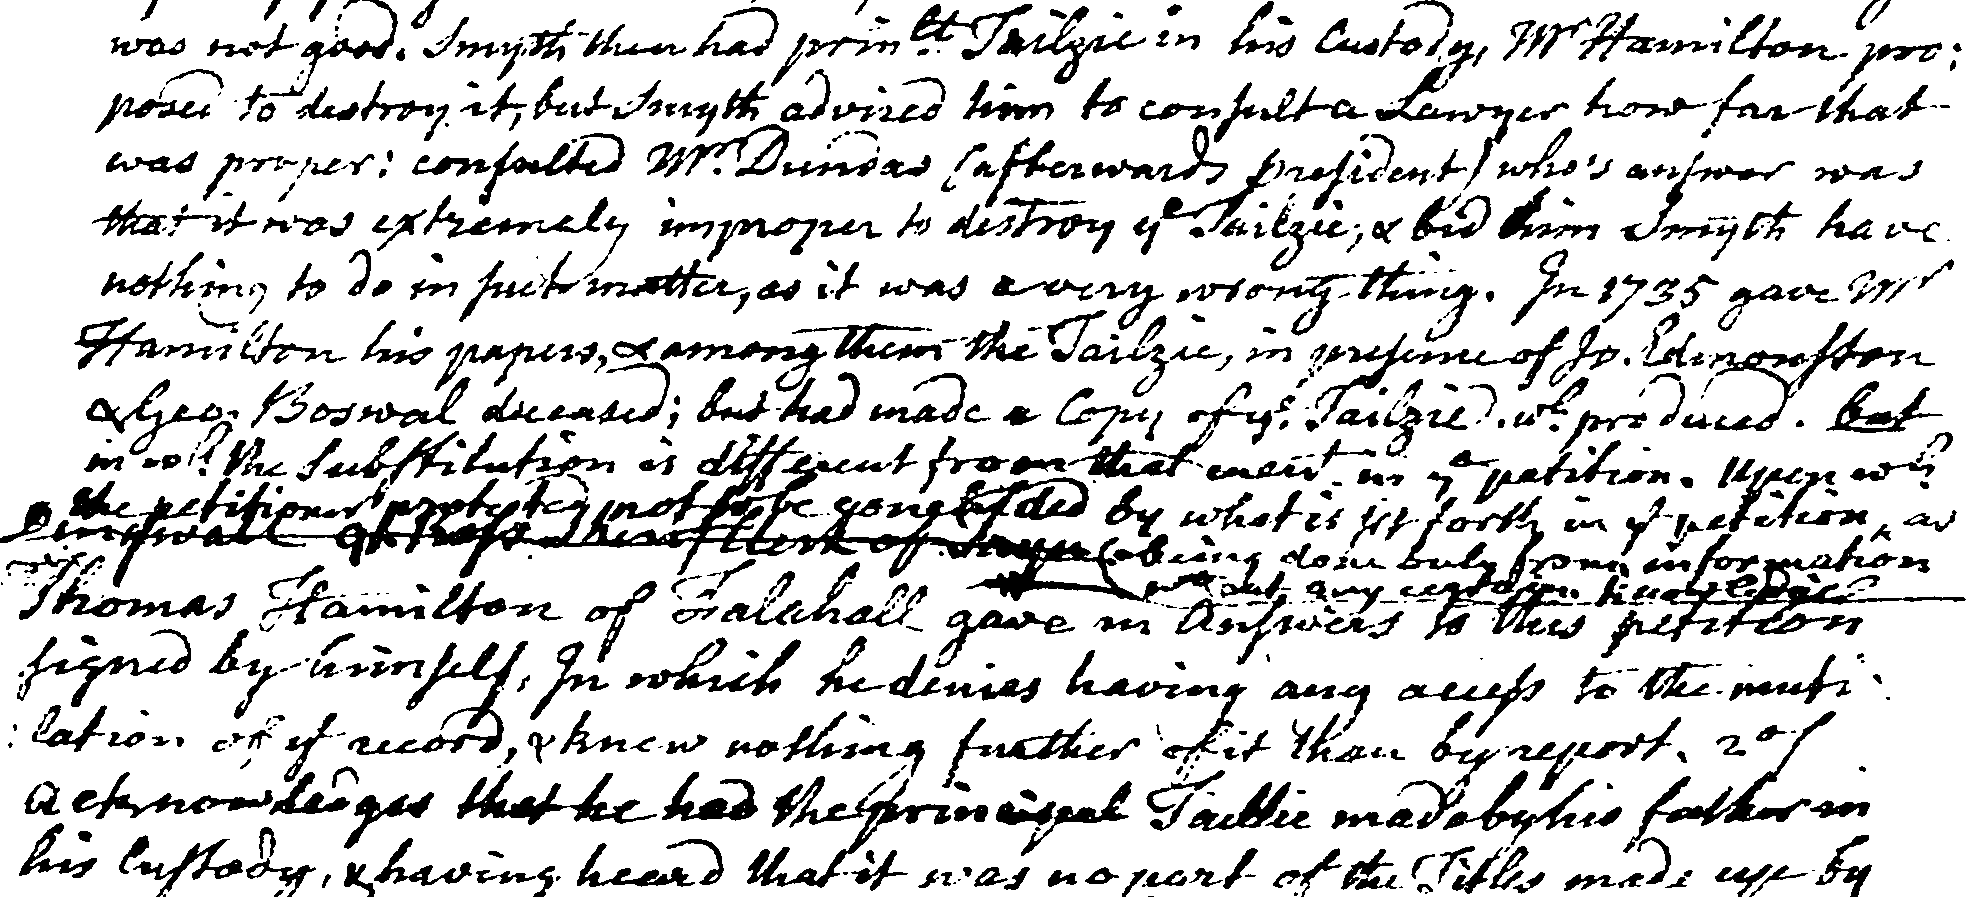 was not good. Smyth then had prinlt Tailzie in his Custody, Mr Hamilton pro:
posed to destroy it, but Smyth advised him to consult a Lawyer how far that
was proper: consulted Mr. Dundas (afterwards president) who's answer was
that it was extremely improper to destroy ye Tailzie, & bid him Smyth have
nothing to do in such matter, as it was a very wrong thing. In 1735 gave Mr
Hamilton his papers, & among them the Tailzie, in presence of Jo. Edmonston
& Geo. Boswal deceased; but had made a Copy of ye. Tailzie. wh. produced. but
in wh. the Substitution is different from that ment. in ye petition. Upon wh
the petitioner protested not to be concluded by what is set forth in ye petition, as
being done only from information
wtout any certain knowledge
Thomas Hamilton of Falahall gave in Answers to this petition
signed by himself, In which he denies having any access to the muti
:lation of ye record, & knew nothing further of it than by report. 2o/
Acknowledges that he had the principal Tailzie made by his father in
his Custody, & having heard that it was no part of the Titles made up by